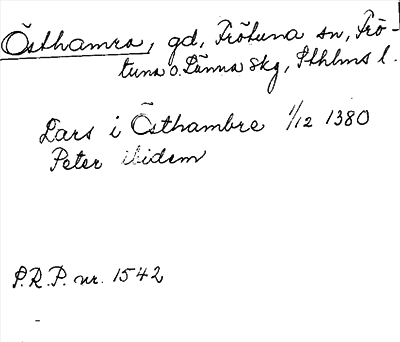 Östhamra, gd, Frötuna sn, Frö-
tuna o. Länna skg, Sthlms l.
Lars i Östhambre 1/12 1380
Peter ibidem
P.R.P. nr. 1542